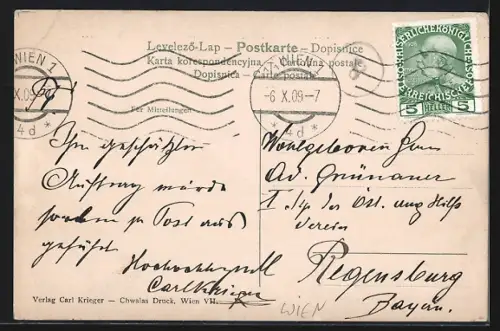 Levelező-Lap – Postkarte – Dopisnice
Karta korespondencyjna – Cartolina postale
Dopisnica – Carte postale
WIEN 1
X.09
4d
-6 X.09-7
* 4d *
KAISERLICHE KÖNIGLICHE
ÖSTERREICHISCHE POST
1908
5 HELLER 5
Für Mitteilungen
Ihr geschätzter
Auftrag wurde
soeben zu Post aus
geführt
Hochachtungsvoll
Carl Krieger
Wohlgeboren Herrn
Ad. Grünauer
I. Vip des Öst. ung Hilfs
verein
Regensburg
Bayern.
Verlag Carl Krieger – Chwalas Druck, Wien VII.
WIEN